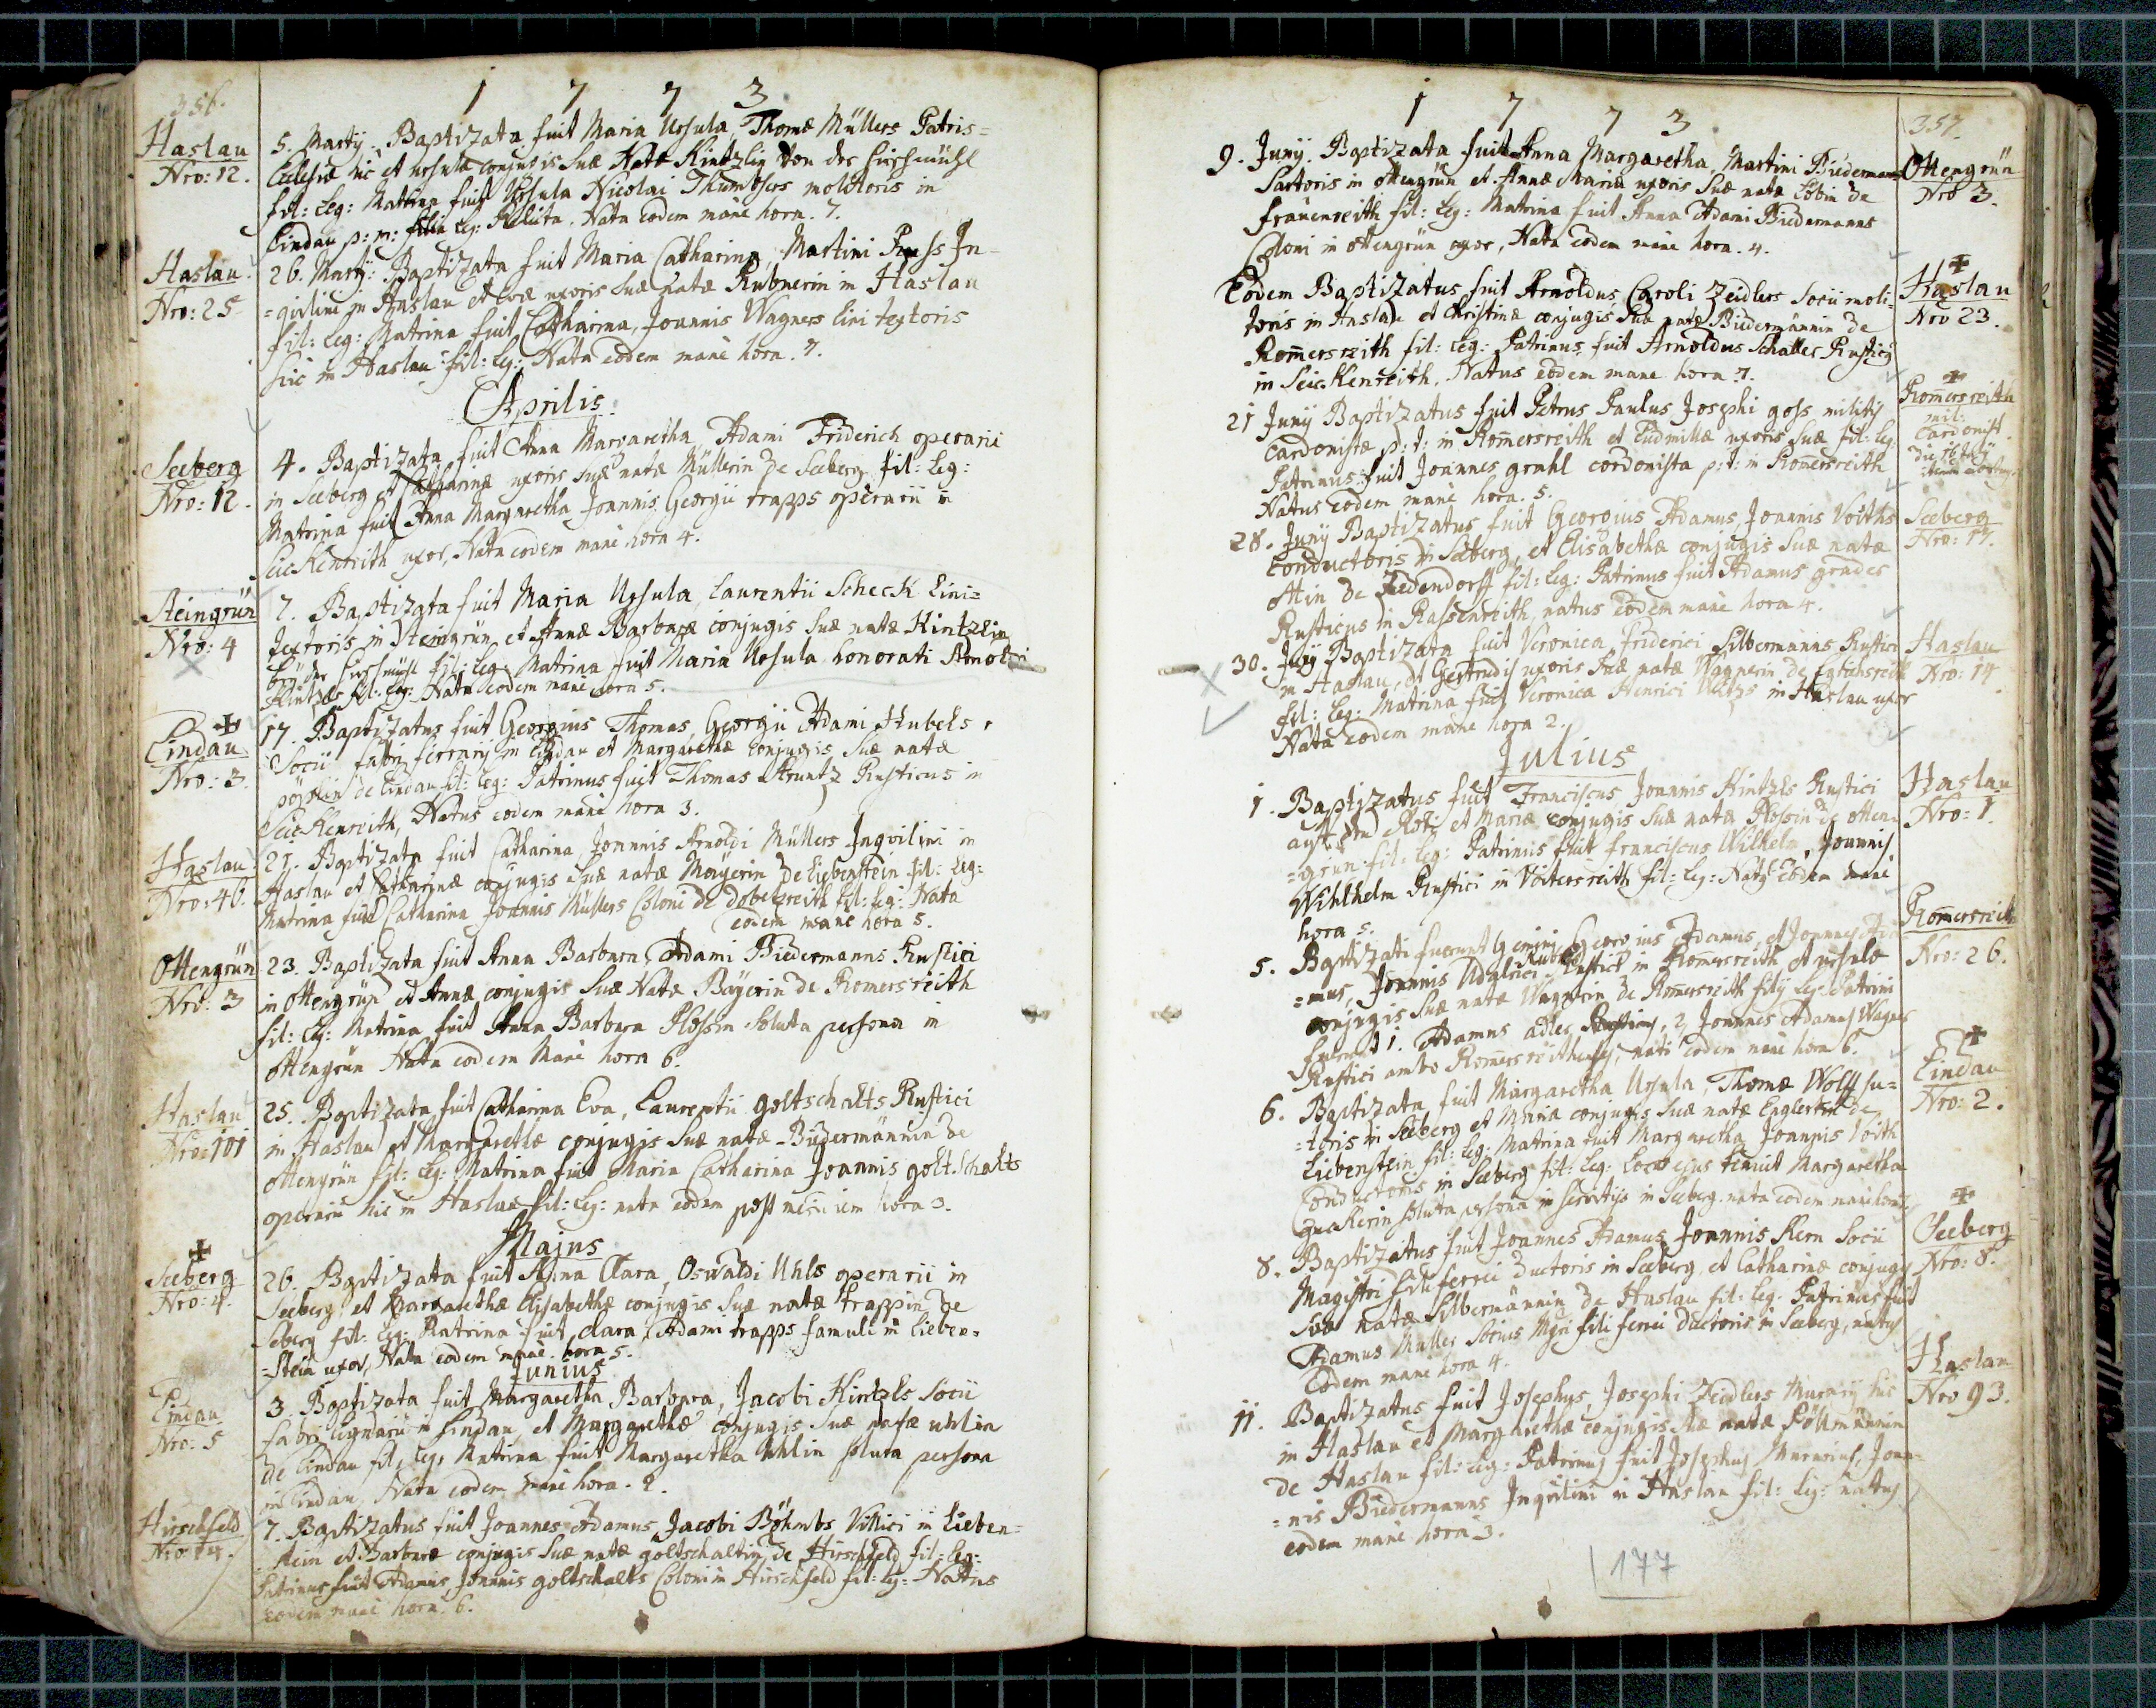 356.
1 7 7 3
Haslau
Nro: 12.
5. Martÿ. Baptizata fuit Maria Ursula, Thomæ Müllers Patris=
hic et ursulæ conjugis suæ Natæ Kintzlin von der hirschmühl
fil: Leg: Matrina fuit Ursula Nicolai Thumbsers molitoris in
Lindau p: m: filia leg: Soluta. Nata eodem mane hora. 7.
Haslau
Nro: 25
26. Martÿ: Baptizata fuit Maria Catharina, Martini Russ In=
=qvilini in Haslau et Evæ uxoris suæ natæ Rubnerin in Haslau
fil: Leg: Matrina fuit Catharina, Joannis Wagners linitextoris
hic in Haslau fil: Leg: Nata eodem mane hora. 7.
Aprilis
Seeberg
Nro: 12.
4. Baptizata fuit Anna Margaretha, Adami Friderich operarii
in Seeberg et Catharinæ uxoris suæ natæ Müllerin de Seeberg fil: Leg:
Matrina fuit Anna Margaretha Joannis Georgii trapps operarii in
SeicKenreith uxor, Nata eodem mane hora 4.
Steingrün
Nro: 4
7. Baptizata fuit Maria Ursula, Laurentii SchecK Lini=
textoris in Steingrün et Annæ Barbaræ conjugis suæ natæ Kintzlin
hirschmühl fil: Leg: Matrina fuit Maria Ursula honorati Arnoldi
Kintzls fil: leg: Nata eodem mane hora 5.
Lindau
Nro: 3.
17. Baptizatus fuit Georgius Thomas, Georgii Adami Hubels
Socii fabri ferrarÿ in Lindau et Margarethæ Conjugis suæ natæ
de Lindau fil: Leg: Patrinus fuit Thomas Kuntz Rusticus in
SeicKenreith, Natus eodem mane hora 3.
Haslau
Nro: 46.
21. Baptizata fuit Catharina Joannis Arnoldi Müllers Inqvilini in
Haslau et Catharinæ conjugis suæ natæ Mayerin de Liebenstein fil: Leg:
Matrina fuit Catharina Joannis Müllers Coloni de dobelzreith fil: leg: Nata
eodem mane hora 5.
Ottengrün
Nro: 3
23. Baptizata fuit Anna Barbara, Adami Biedermanns Rustici
in Ottengrün et Annæ conjugis suæ Natæ Bäyerin de Romersreith
fil: Leg: Matrina fuit Anna Barbara Plossin soluta persona in
ottengrün Nata eodem mane hora 6.
Haslau
Nro: 101
25. Baptizata fuit Catharina Eva, Laurentii goltschalts Rustici
in Haslau et Margarethæ conjugis suæ natæ Biedermännin de
ottengrün fil: Leg: Matrina fuit Maria Catharina Joannis goltschalts
operarii hic in Haslau fil: Leg: nata eodem post meridiem hora 3.
Majus
Seeberg
Nro: 4.
26. Baptizata fuit Anna Clara, Oswaldi Uhls operarii in
Seeberg et Margarethæ Elisabethæ conjugis suæ natæ trappin de
Seberg fil: Leg: Matrina fuit Clara, Adami trapps famuli in Lieben=
=Stein uxor, Nata eodem mane hora 5.
Junius
Lindau
Nro: 5
3. Baptizata fuit Margaretha Barbara, Jacobi Kintzls Socii
fabri Lignarii in Lindau, et Margarethæ conjugis suæ natæ uhlin
de Lindau fil: Leg: Matrina fuit Margaretha Uhlin soluta persona
in Lindau, Nata eodem mane hora. 2.
Hirschfeld
Nro: 14.
7. Baptizatus fuit Joannes Adamus, Jacobi Böhmbs Villici in Lieben=
stein et Barbaræ conjugis suæ natæ goltschaltin de Hirschfeld fil: leg:
Patrinus fuit Adamus, Joannis goltschalts Coloni in Hirschfeld fil: leg: Natus
eodem mane hora. 6.
357.
1 7 7 3
Ottengrün
Nro 3.
9. Junÿ. Baptizata fuit Anna Margaretha, Martini Biedermanns
Sartoris in ottengrün et Annæ Mariæ uxoris suæ natæ Löbin de
frauenreith fil: leg: Matrina fuit Anna Adami Biedermanns
Coloni in ottengrün uxor, Nata eodem mane hora. 4.
Haslau
Nro 23.
Eodem Baptizatus fuit Arnoldus, Caroli Zeidlers Socii moli=
toris in Haslau et Christinæ conjugis suæ natæ Biedermännin de
Romersreith fil: leg: Patrinus fuit Arnoldus Schaller Rusticÿ
in SeicKenreith, Natus eodem mane hora 7.
Romersreith
mil:
Cardonist
21 Junÿ Baptizatus fuit Petrus Paulus Josephi goss militis
Cardonistæ p: t: in Romersreith et Ludmillæ uxoris suæ fil: leg:
Patrinus fuit Joannes grahl cordonista p: t: in Romersreith
Natus eodem mane hora. 5.
Seeberg
Nro: 17.
28. Junÿ Baptizatus fuit Georgius Adamus, Joannis Voiths
Conductoris in Seeberg, et Elisabethæ conjugis suæ natæ
ottin de fil: leg: Patrinus fuit Adamus grader
Rusticus in Rassenreith, natus eodem mane hora 4.
Haslau
Nro: 14
30. Junÿ Baptizata fuit Veronica, friderici Silbermanns Rustici
in Haslau, et Gertrudis uxoris suæ natæ Wagnerin de
fil: leg: Matrina fuit Veronica Henrici in Haslau uxor
Nata eodem mane hora 2.
Julius
Haslau
Nro: 1.
1. Baptizatus fuit Franciscus Joannis Hintzls Rustici
et Mariæ conjugis suæ natæ Plossin de otten=
=grun fil: leg: Patrinus fuit franciscus Wilhelm, Joannis
Wihlhelm Rustici in Voitersreith fil: leg: Natus eodem mane
hora 5.
Romersreith
Nro: 26.
5. Baptizati fuerunt Gemini, Georgius Adamus, et Joannes Ada
=mus, Joannis Udalrici Rustici in Romersreith et ursulæ
conjugis suæ natæ Wagnerin de Romersreith filÿ leg: Patrini
fuerunt 1. Adamus adler Rusticus, 2. Joannes Adamus Wagner
Rustici ambo Romersreithenses, nati eodem mane hora 6.
Lindau
Nro: 2.
6. Baptizata fuit Margaretha Ursula, Thomæ Wolff su=
=toris in Seeberg et Mariæ conjugis suæ natæ Englertin de
Liebenstein fil: leg: Matrina fuit Margaretha Joannis Voith
Conductoris in Seeberg fil: leg: Loco ejus tenuit Margaretha
soluta persona in servitÿs in Seeberg. nata eodem mane hora
Seeberg
Nro: 8.
8. Baptizatus fuit Joannes Adamus, Joannis Kern Socii
Magistri fili ferrei ductoris in Seeberg, et Catharinæ conjugis
suæ natæ Silbermännin de Haslau fil: leg: Patrinus fuit
Adamus Muller Socius Mgri fili ferrei ductoris in Seeberg, natus
Eodem mane hora 4.
Haslau
Nro 93.
11. Baptizatus fuit Josephus, Josephi Zeidlers Murarÿ hic
in Haslau et Margarethæ conjugis suæ natæ Pöllmännin
de Haslau fil: leg: Patrinus fuit Josephus Murarius, Joan=
=nis Biedermanns Inqvilini in Haslau fil: leg: natus
eodem mane hora 3.
177